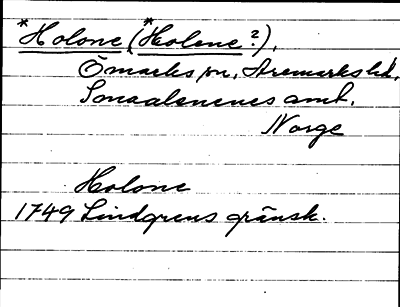 *Holone (*Holene?),
Ömarks sn, Aremarks hd,
Smaalenenes amt.
Norge
Holone
1749 Lindgrens gränsk.